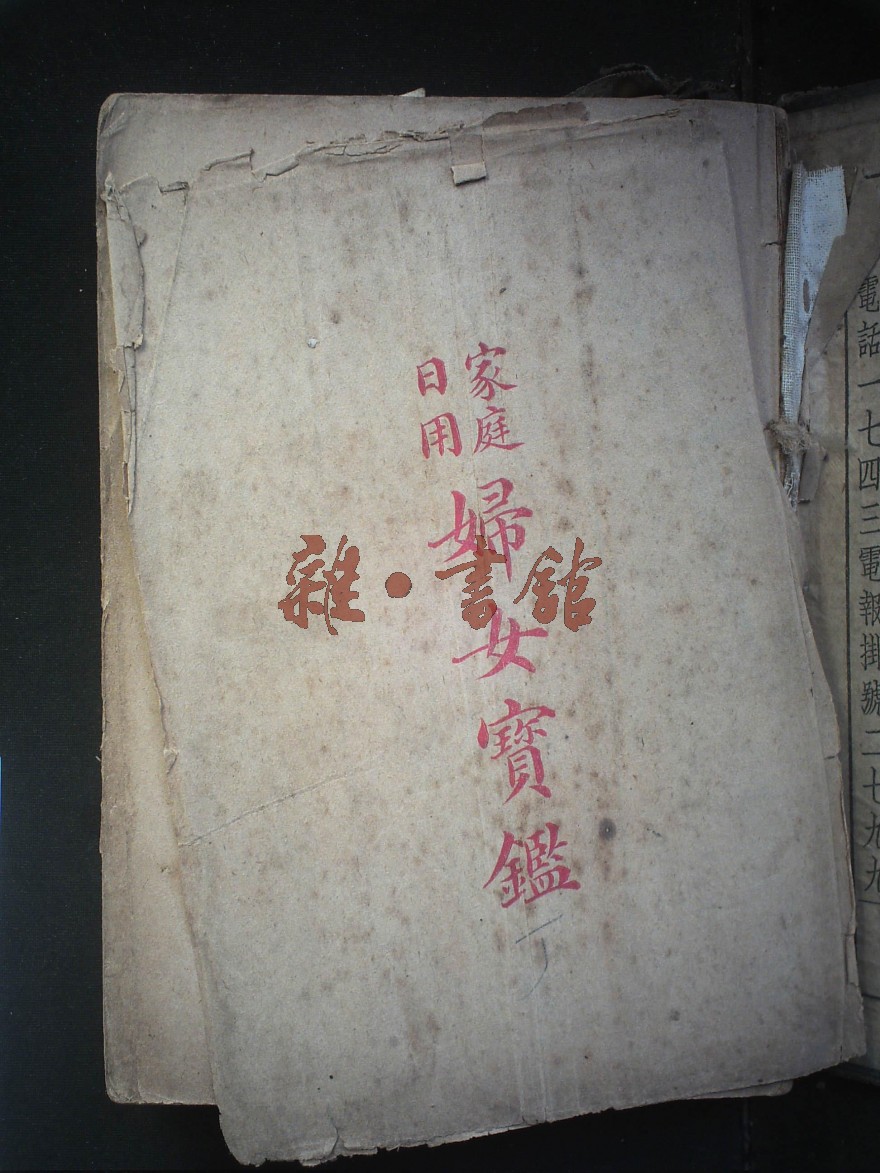 電話一七四三電報掛號二七九九
家庭
日用
婦女寶鑑
雜·書館